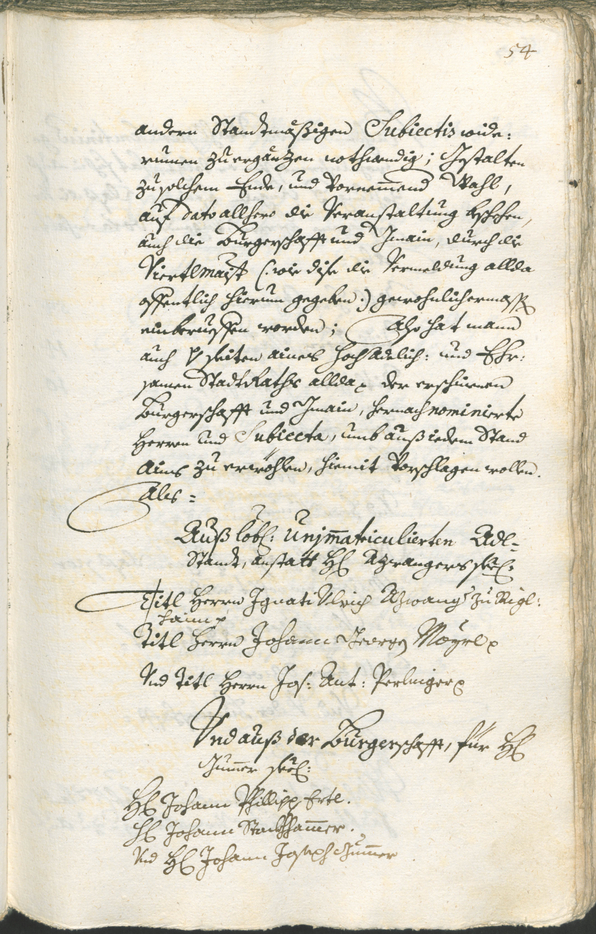 54
andern Standtmäßigen Subiectis wide-
rumen zu ergänzen nothwendig; Gestalten
zu solchem Ende, und vornemmend Wahl,
auf dato allhero die Veranstaltung bschehen,
auch die Burgerschafft und Gmain, durch die
Viertlmaister (: wie dise die Vermeldung allda
offentlich hierum gegeben :) gewohnlichermass
einberueffen worden; Also hat mann
auch seiten aines Hochadelich: und Ehr-
samen StadtRaths allda der erschinen
Burgerschafft und Gmain, hernach nominierte
Herren und Subiecta, umb auß iedem Stand
ains zu erwöhlen, hiemit Vorschlagen wollen.
Als:
Auß lobl: Unjmatriculierten Adl-
Standt, anstatt H: seel:
Titl Herrn Ignati Ulrich zu
Titl Herrn Johann Georg Mayrl
Und Titl Herrn Jos: Ant: Perlinger
Und auß der Burgerschafft, für H:
seel:
H: Johann Phillipp Ertl.
H: Johann Stockhammer.
Und H: Johann Joseph